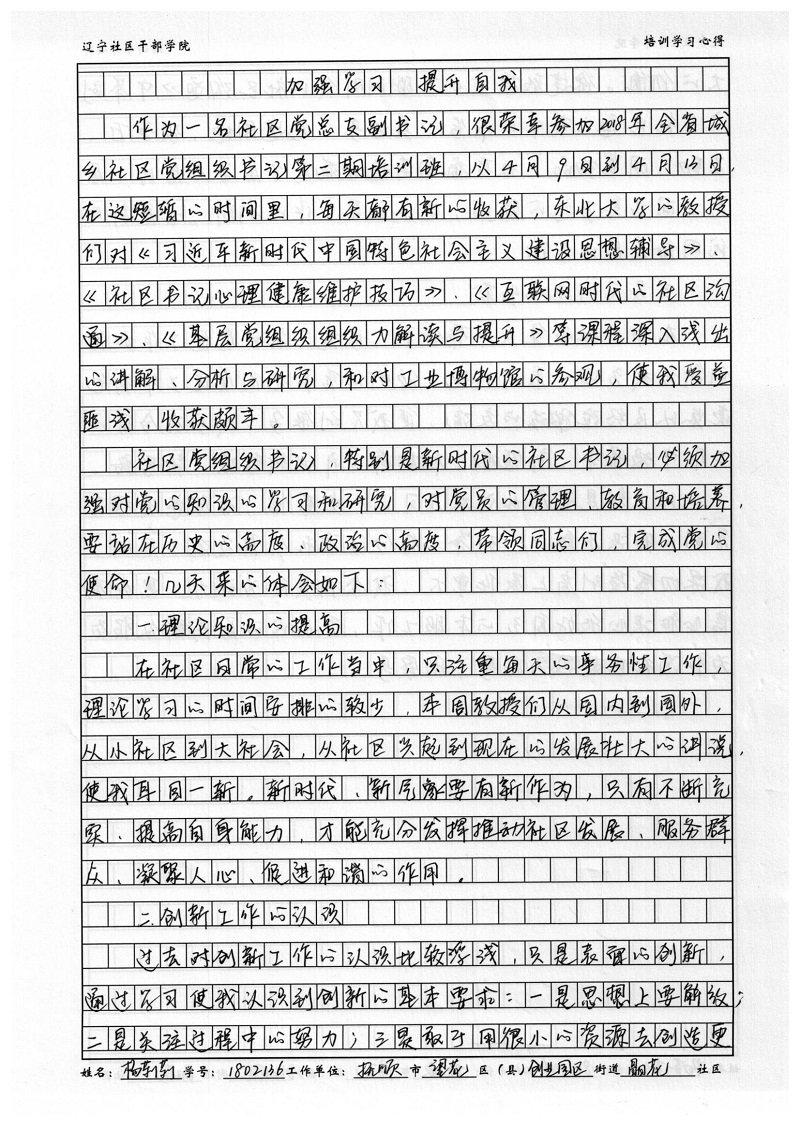 辽宁社区干部学院 培训学习心得
加强学习 提升自我
作为一名社区党总支副书记，很荣幸参加2018年全省城
乡社区党组织书记第二期培训班，从4月9日到4月13日，
在这短暂的时间里，每天都有新的收获，东北大学的教授
们对《习近平新时代中国特色社会主义建设思想辅导》、
《社区书记心理健康维护技巧》、《互联网时代的社区沟
通》、《基层党组织组织力解读与提升》等课程深入浅出
的讲解、分析与研究，和对工业博物馆的参观，使我受益
匪浅，收获颇丰。
社区党组织书记，特别是新时代的社区书记，必须加
强对党的知识的学习和研究，对党员的管理、教育和培养，
要站在历史的高度、政治的高度，带领同志们，完成党的
使命！几天来的体会如下：
一.理论知识的提高
在社区日常的工作当中，只注重每天的事务性工作，
理论学习的时间安排的较少，本周教授们从国内到国外，
从小社区到大社会，从社区兴起到现在的发展壮大的讲说，
使我耳目一新。新时代、新气象要有新作为，只有不断充
实、提高自身能力，才能充分发挥推动社区发展、服务群
众、凝聚人心、促进和谐的作用。
二.创新工作的认识
过去对创新工作的认识比较浮浅，只是表面的创新，
通过学习使我认识到创新的基本要求：一是思想上要解放；
二是关注过程中的努力；三是敢于用很小的资源去创造更
姓名： 学号：1802136 工作单位：抚顺 市 望花 区（县） 创业园区 街道 社区